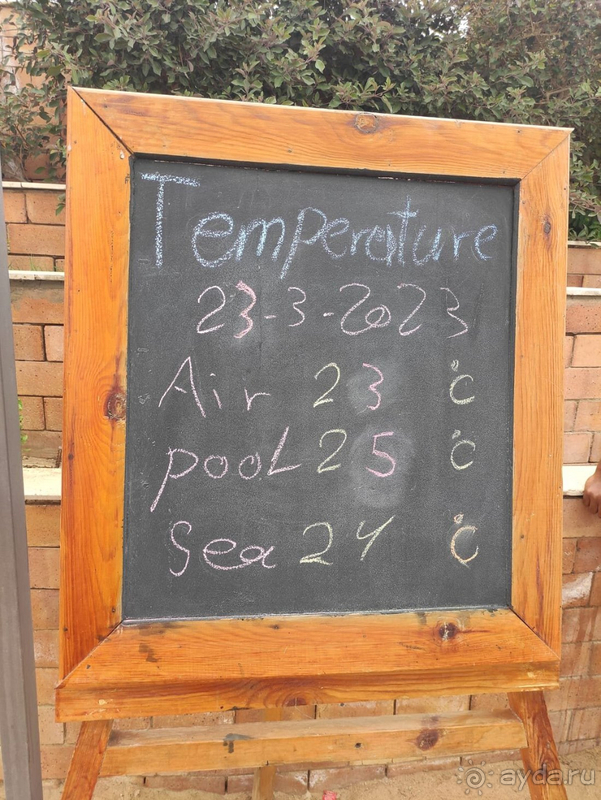 Temperature
23-3-2023
Air 23 °C
pooL 25 °C
Sea 24 °C
ayda.ru